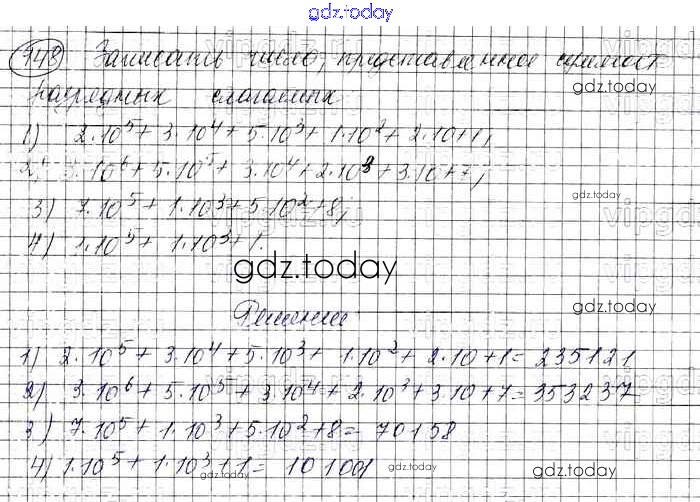 gdz.today
148 Записать число, представленное суммой
gdz.today
разрядных слагаемых
1) 2·10⁵ + 3·10⁴ + 5·10³ + 1·10² + 2·10 + 1,
2) 3·10⁶ + 5·10⁵ + 3·10⁴ + 2·10³ + 3·10 + 7,
gdz.today
3) 7·10⁵ + 1·10³ + 5·10² + 8,
4) 1·10⁵ + 1·10³ + 1.
gdz.today
gdz.today
Решение
1) 2·10⁵ + 3·10⁴ + 5·10³ + 1·10² + 2·10 + 1 = 235121
2) 3·10⁶ + 5·10⁵ + 3·10⁴ + 2·10³ + 3·10 + 7 = 353237
3) 7·10⁵ + 1·10³ + 5·10² + 8 = 70158
4) 1·10⁵ + 1·10³ + 1 = 101001
gdz.today gdz.today gdz.today